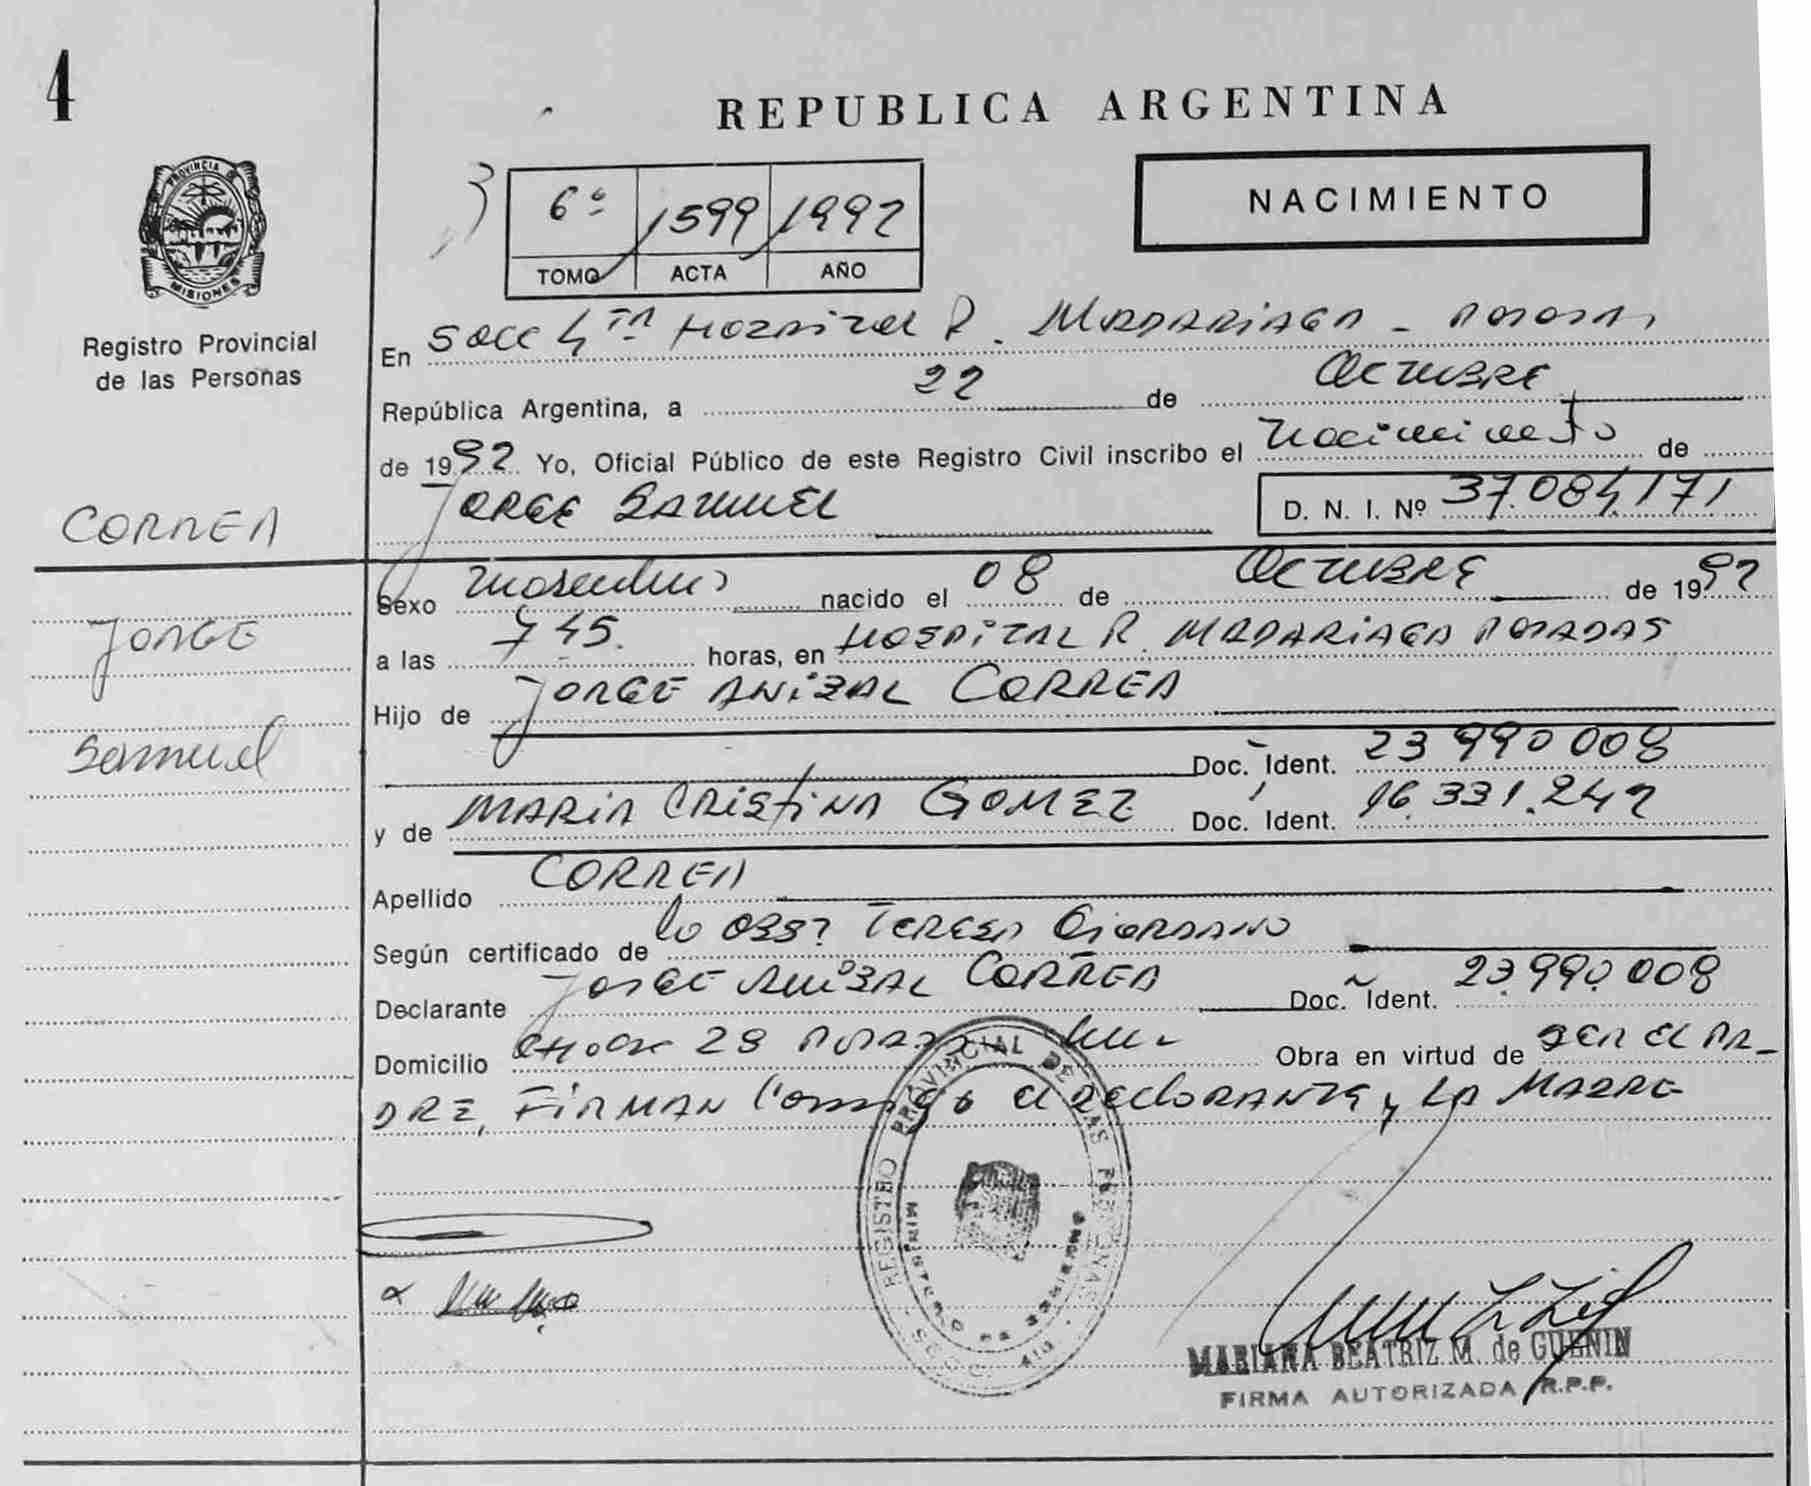 4
REPUBLICA ARGENTINA
PROVINCIA D
MISIONES
Registro Provincial
de las Personas
6º 1599 1992
TOMO ACTA AÑO
NACIMIENTO
En Secc 4ta Hospital R. MADARIAGA - Posadas
República Argentina, a 22 de OCTUBRE
de 1992 Yo, Oficial Público de este Registro Civil inscribo el Nacimiento de
JORGE SAMUEL D. N. I. Nº 37.084.171
CORREA
Jorge
Samuel
Sexo masculino nacido el 08 de OCTUBRE de 1992
a las 7 45. horas, en HOSPITAL R. MADARIAGA POSADAS
Hijo de JORGE ANIBAL CORREA
Doc. Ident. 23 990 008
y de MARIA CRISTINA GOMEZ Doc. Ident. 16.331.242
Apellido CORREA
Según certificado de la OBST TERESA GIORDANO
Declarante JORGE ANIBAL CORREA Doc. Ident. 23.990.008
Domicilio 28 Obra en virtud de SER EL PA-
DRE, FIRMAN Conmigo el DECLARANTE y LA MADRE
REGISTRO PROVINCIAL DE LAS PERSONAS
MINISTERIO DE GOBIERNO
MARIANA BEATRIZ M. de GUENIN
FIRMA AUTORIZADA R.P.P.